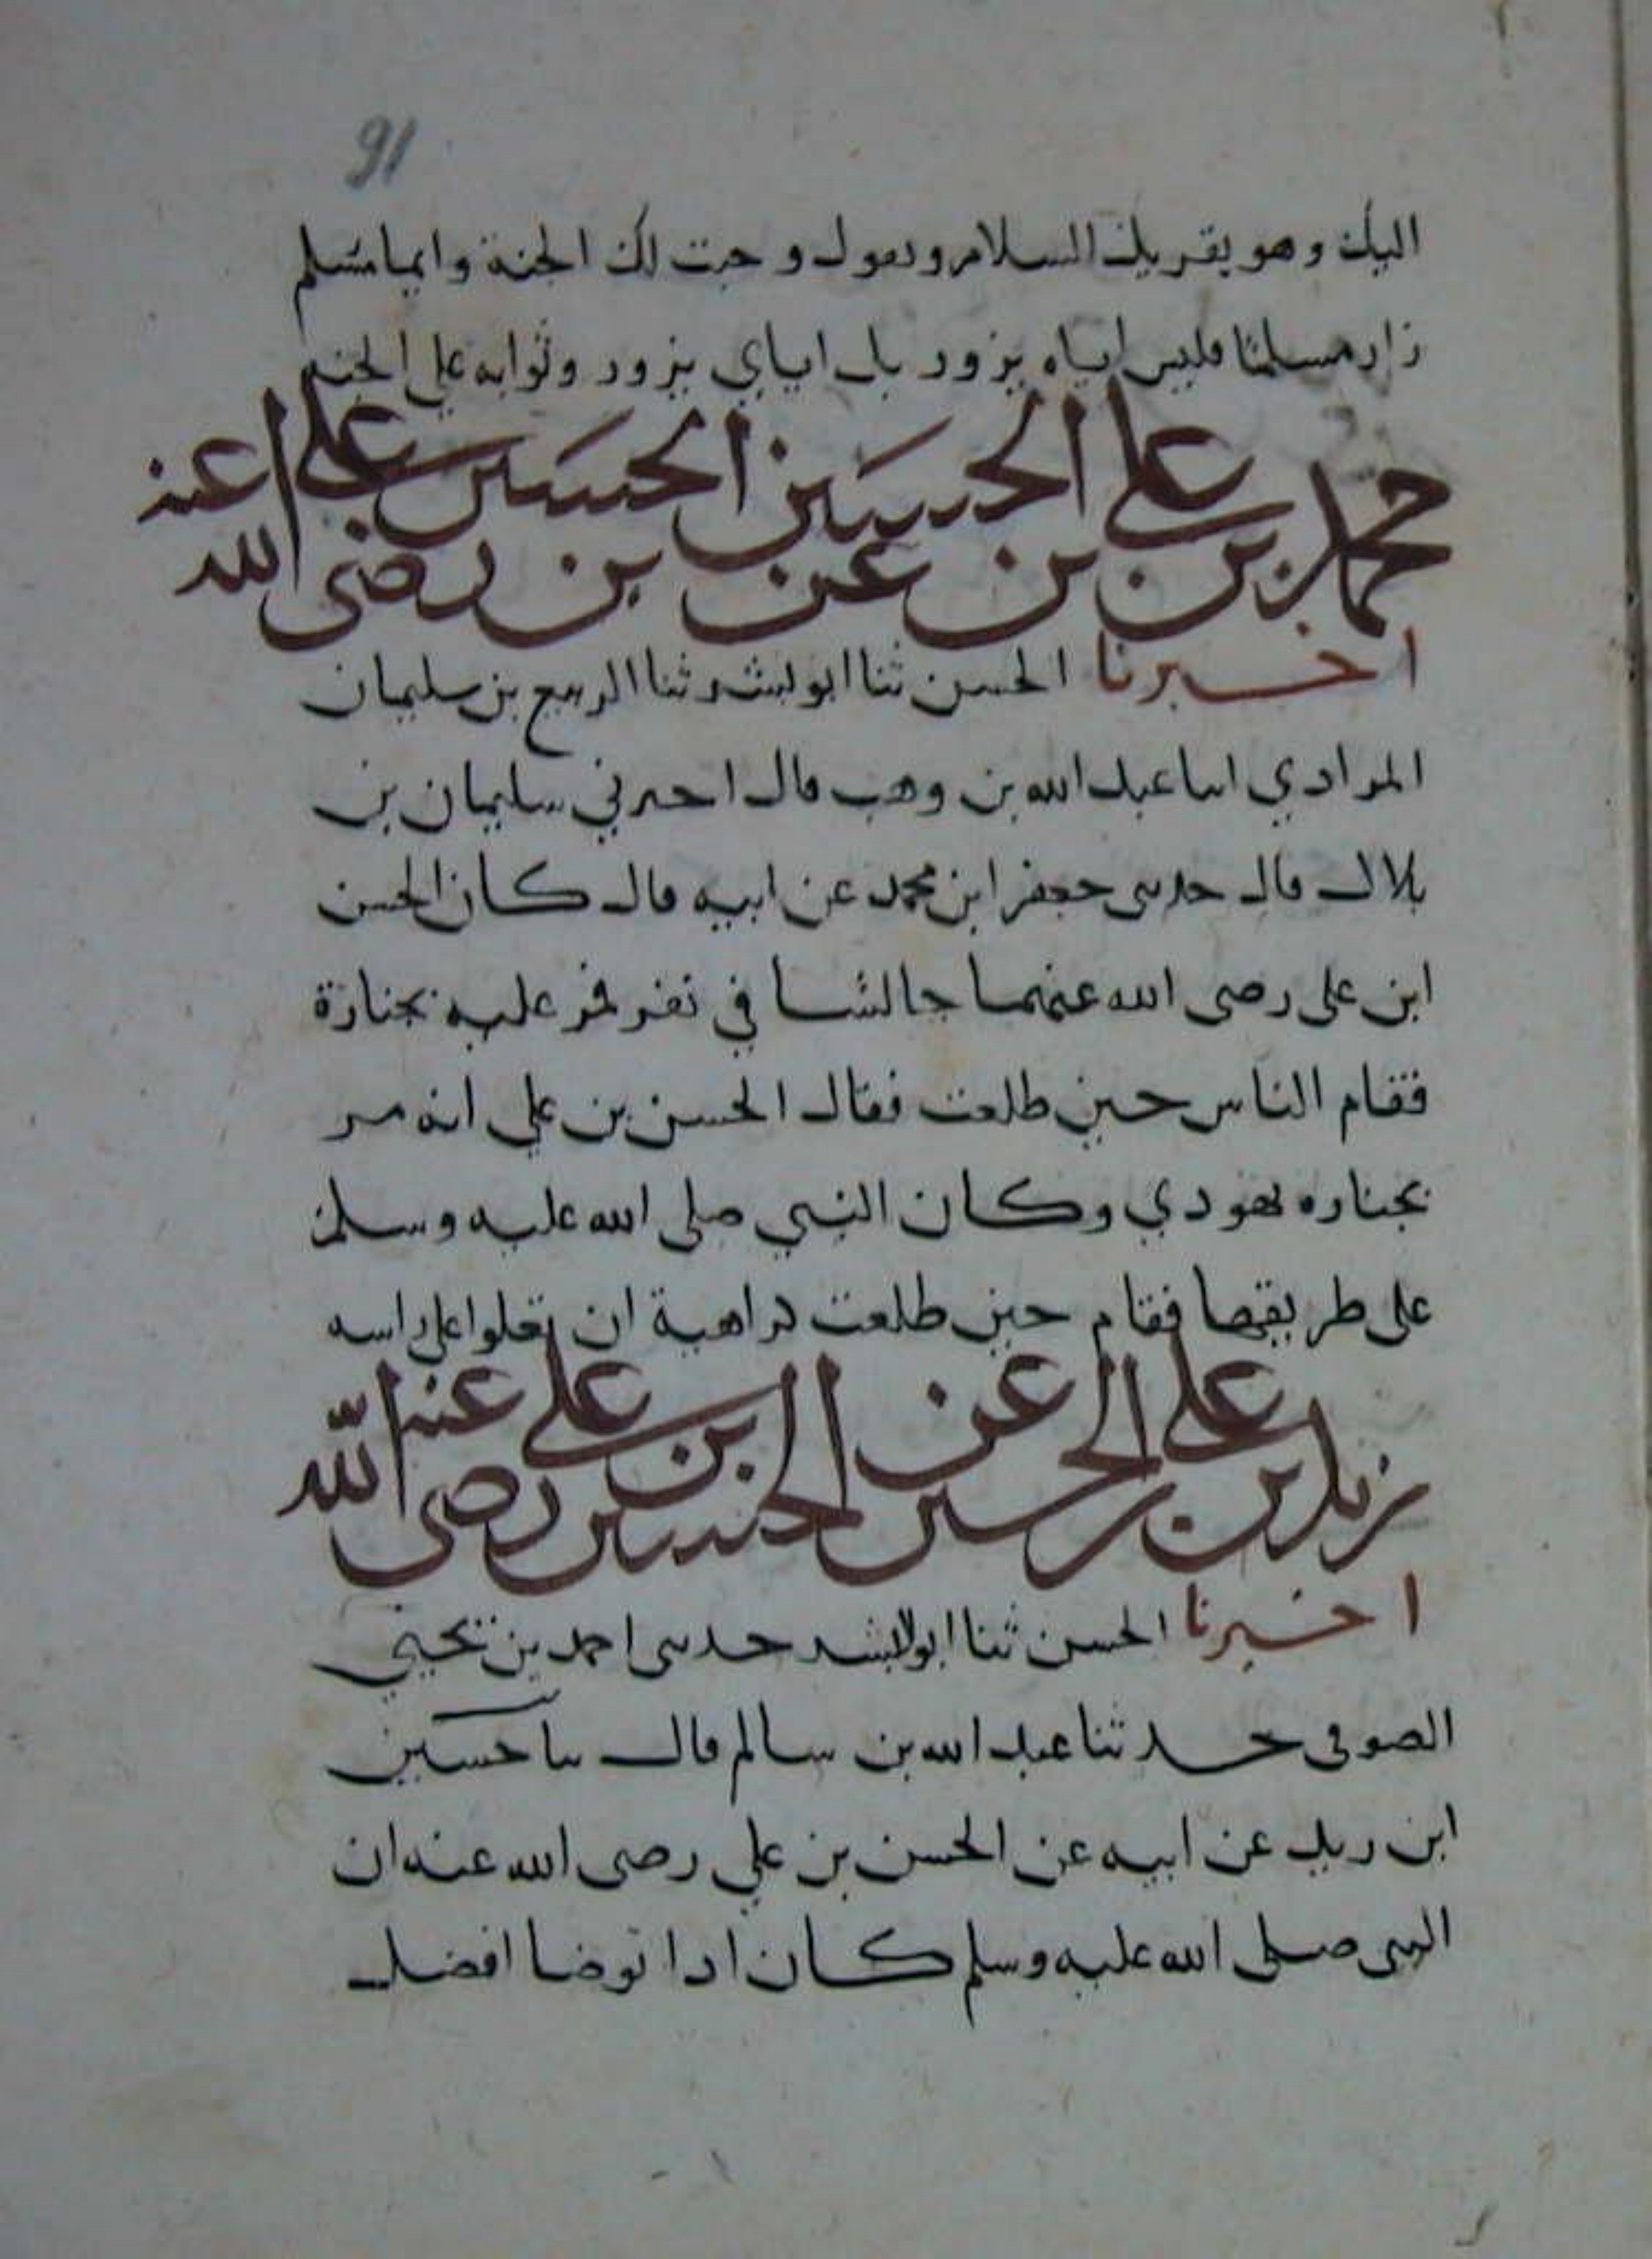 91
اليك وهو يقريك السلام ويقول وجبت لك الجنة وايما مسلم
زار مسلما فليس اياه يزور بل اياي يزور وثوابه علي الجنه
محمد بن علي بن الحسين عن الحسين بن علي رضى الله عنه
اخبرنا الحسن ثنا ابو بشر ثنا الربيع بن سليمان
المرادي انبا عبد الله بن وهب قال اخبرني سليمان بن
بلال قال حدثني جعفر ابن محمد عن ابيه قال كان الحسن
ابن على رضى الله عنهما جالسا في نفر فمر عليه بجنازة
فقام الناس حين طلعت فقال الحسن بن علي انه مر
بجنازه يهودي وكان النبي صلى الله عليه وسلم
على طريقها فقام حين طلعت كراهية ان تعلوا على راسه
زيد بن علي الحسن عن الحسن ابن علي رضى الله عنه
اخبرنا الحسن ثنا ابو البشر حدثني احمد بن يحيي
الصوفى حدثنا عبد الله بن سالم قال ثنا حسين
ابن زيد عن ابيه عن الحسن بن علي رضى الله عنه ان
النبى صلى الله عليه وسلم كان اذا توضا افضل